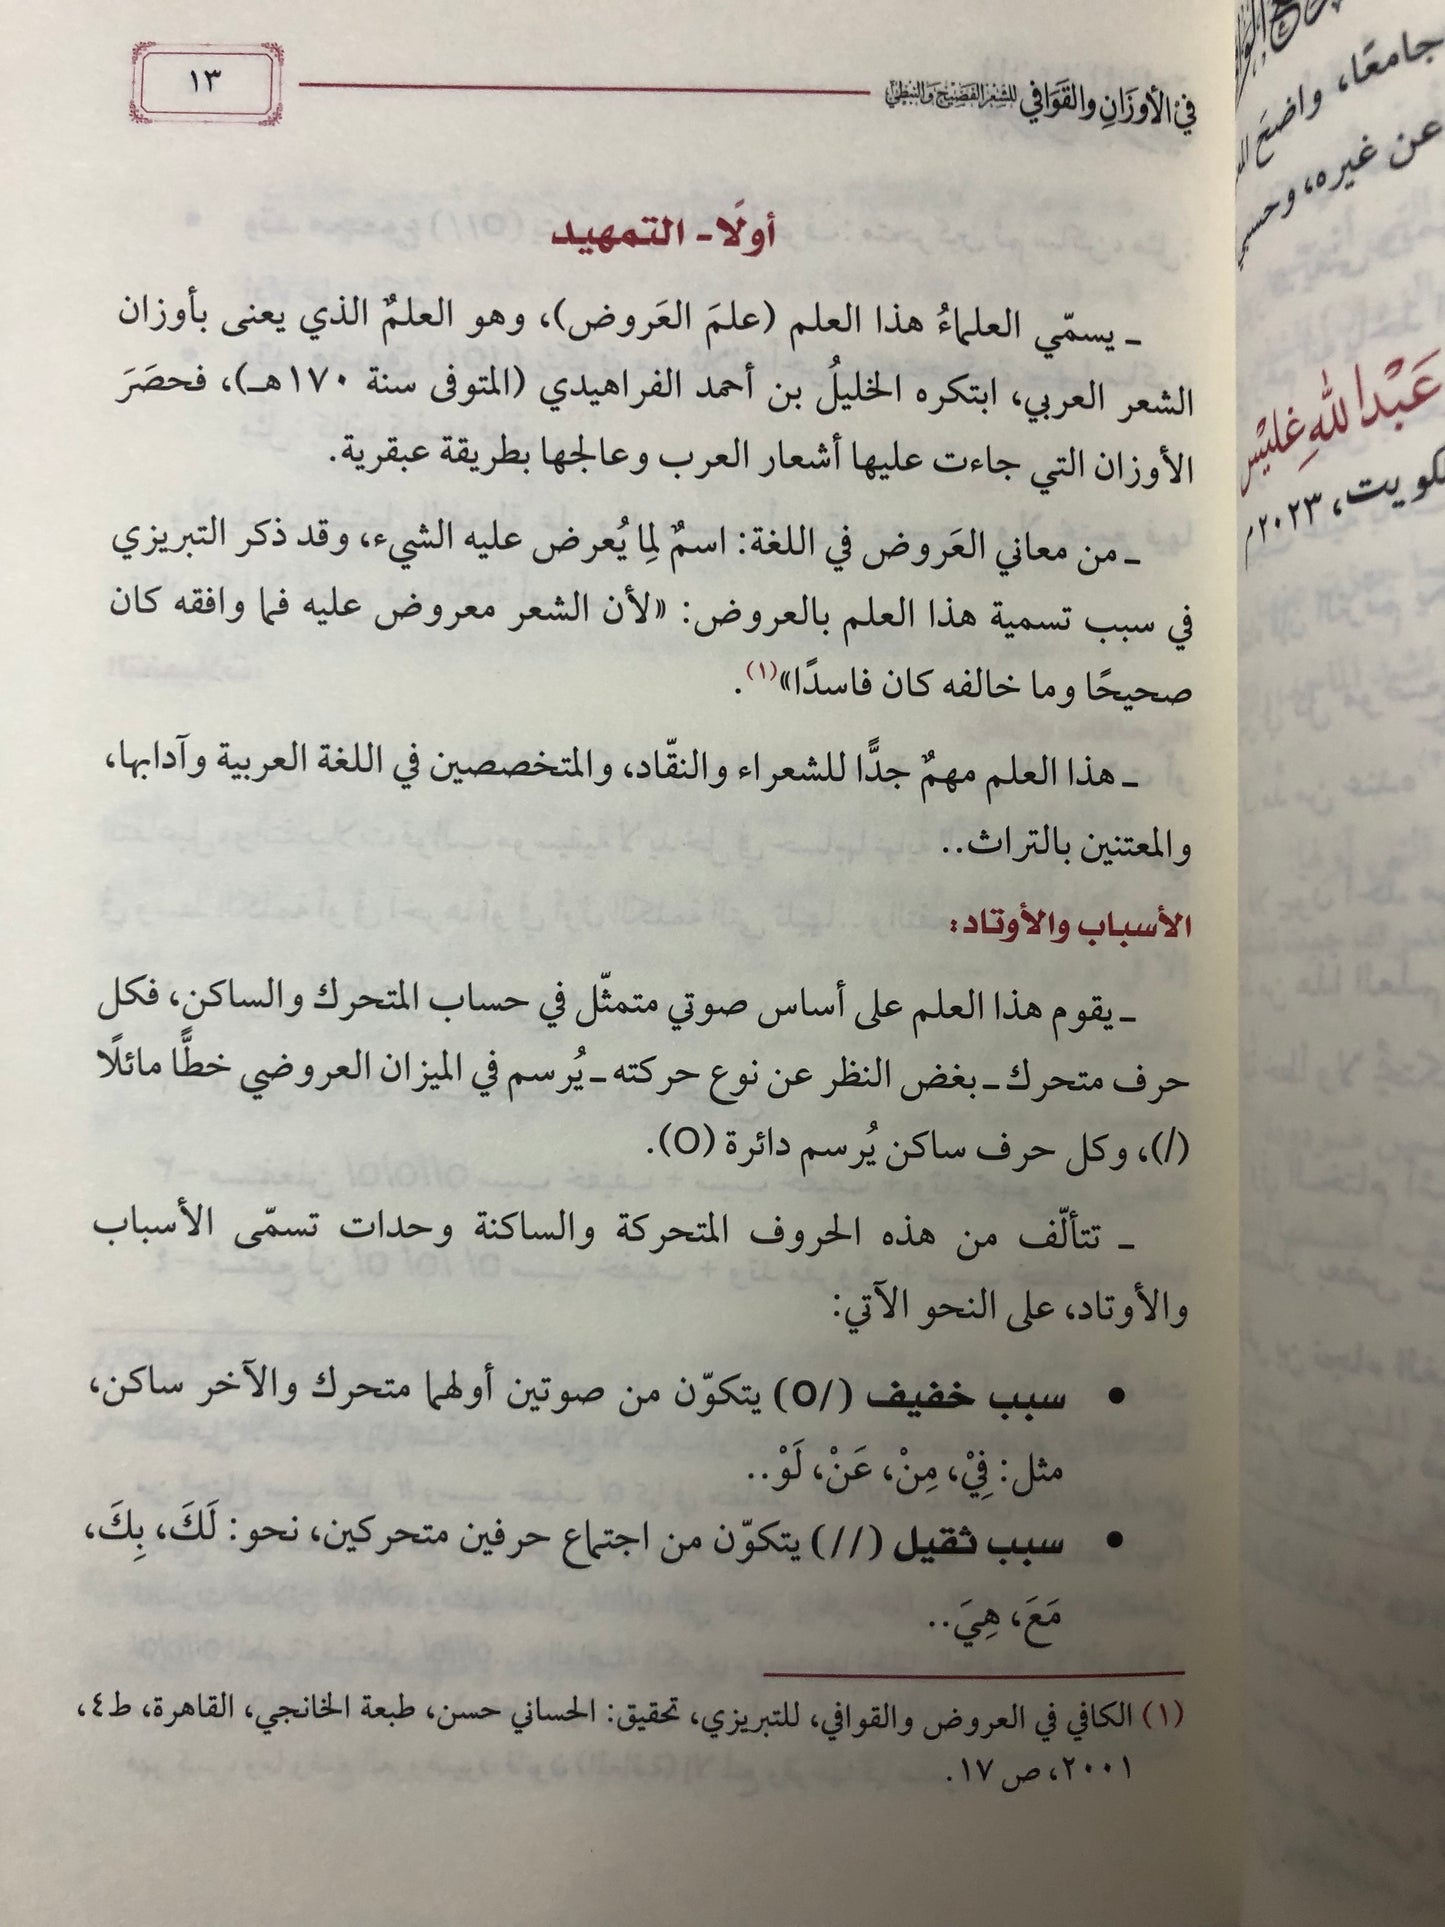 في الأوزان والقوافي للشعر الفصيح والنبطي
١٣
أولًا- التمهيد
ـ يسمّي العلماءُ هذا العلم (علمَ العَروض)، وهو العلمُ الذي يعنى بأوزان
الشعر العربي، ابتكره الخليلُ بن أحمد الفراهيدي (المتوفى سنة ١٧٠هـ)، فحصَرَ
الأوزان التي جاءت عليها أشعار العرب وعالجها بطريقة عبقرية.
ـ من معاني العَروض في اللغة: اسمٌ لِما يُعرض عليه الشيء، وقد ذكر التبريزي
في سبب تسمية هذا العلم بالعروض: «لأن الشعر معروض عليه فما وافقه كان
صحيحًا وما خالفه كان فاسدًا»(١).
ـ هذا العلم مهمٌ جدًّا للشعراء والنقّاد، والمتخصصين في اللغة العربية وآدابها،
والمعتنين بالتراث..
الأسباب والأوتاد:
ـ يقوم هذا العلم على أساس صوتي متمثّل في حساب المتحرك والساكن، فكل
حرف متحرك ـ بغض النظر عن نوع حركته ـ يُرسم في الميزان العروضي خطًّا مائلًا
(/)، وكل حرف ساكن يُرسم دائرة (O).
ـ تتألّف من هذه الحروف المتحركة والساكنة وحدات تسمّى الأسباب
والأوتاد، على النحو الآتي:
• سبب خفيف (/O) يتكوّن من صوتين أولهما متحرك والآخر ساكن،
مثل: فِيْ، مِنْ، عَنْ، لَوْ..
• سبب ثقيل (//) يتكوّن من اجتماع حرفين متحركين، نحو: لَكَ، بِكَ،
مَعَ، هِيَ..
(١) الكافي في العروض والقوافي، للتبريزي، تحقيق: الحساني حسن، طبعة الخانجي، القاهرة، ط٤،
٢٠٠١، ص ١٧.
جامعًا، واضحَ
عن غيره، وحسبي
عَبْدالله غليْس
٢٠٢٣م